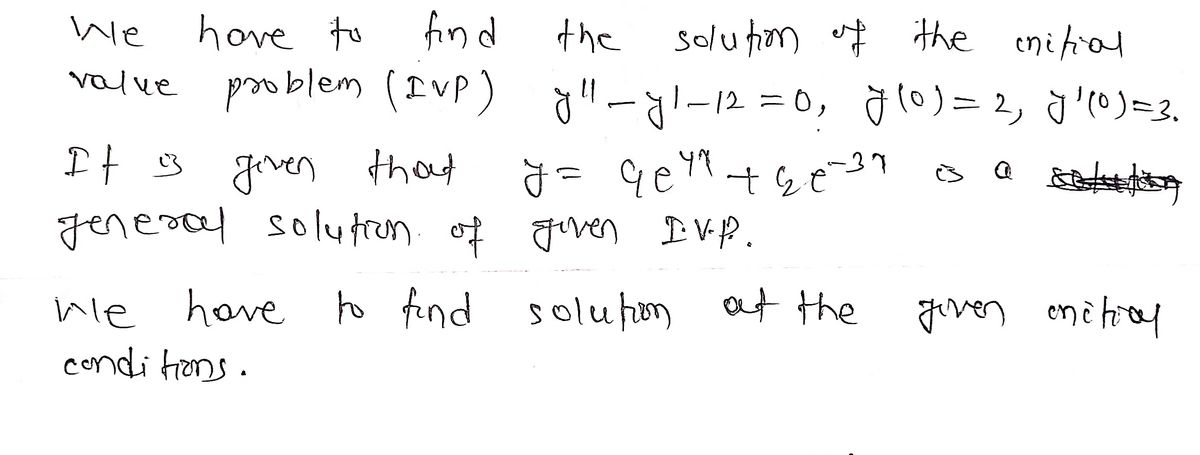 We have to find the solution of the initial
value problem (IVP) y'' - y' - 12 = 0, y(0) = 2, y'(0) = 3.
It is given that y = c₁e⁴ˣ + c₂e⁻³ˣ is a
general solution of given I.V.P.
We have to find solution at the given initial
conditions.